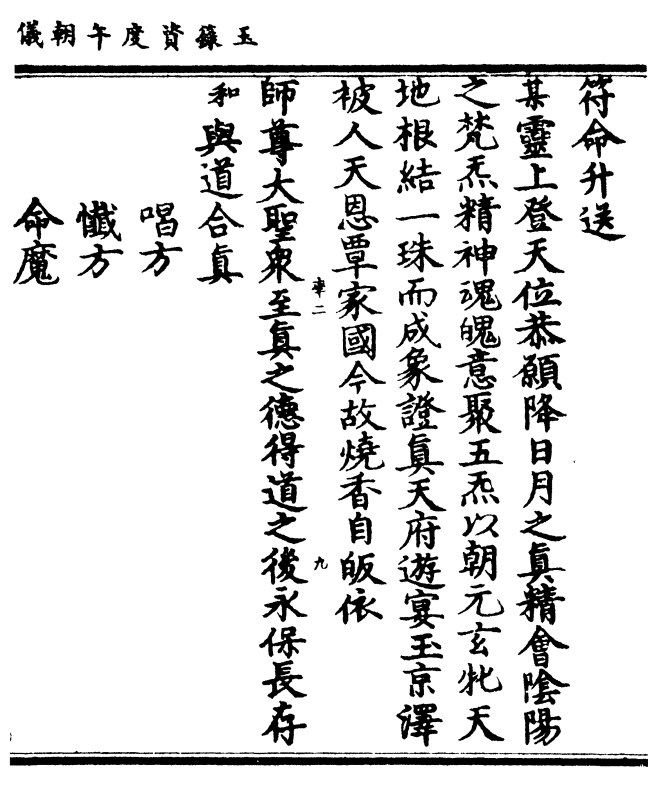 玉籙資度午朝儀
符命升送
某靈上登天位恭願降日月之真精會陰陽
之梵炁精神魂魄意聚五炁以朝元玄牝天
地根結一珠而成象證真天府遊宴玉京澤
被人天恩覃家國今故燒香自皈依
師尊大聖衆至真之德得道之後永保長存
和與道合真
唱方
懺方
命魔
二
九